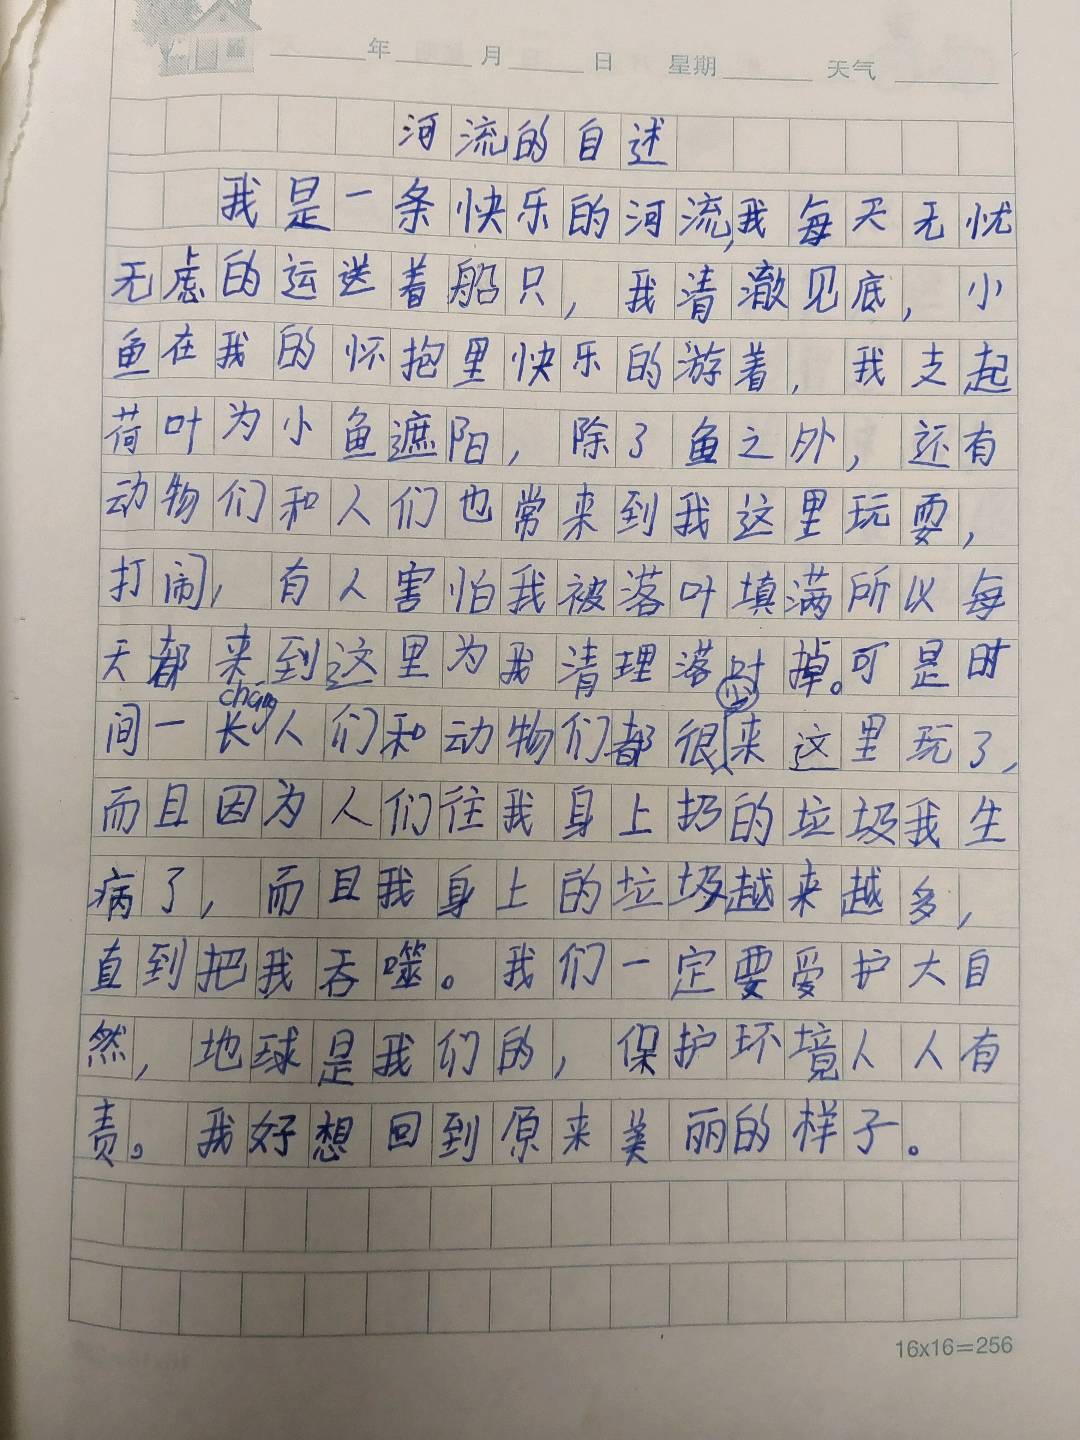 年 月 日 星期 天气
河流的自述
我是一条快乐的河流,我每天无忧
无虑的运送着船只,我清澈见底,小
鱼在我的怀抱里快乐的游着,我支起
荷叶为小鱼遮阳,除了鱼之外,还有
动物们和人们也常来到我这里玩耍,
打闹,有人害怕我被落叶填满所以每
天都来到这里为我清理落叶掉。可是时
cháng 少
间一长人们和动物们都很来这里玩了,
而且因为人们往我身上扔的垃圾我生
病了,而且我身上的垃圾越来越多,
直到把我吞噬。我们一定要爱护大自
然,地球是我们的,保护环境人人有
责。我好想回到原来美丽的样子。
16x16=256